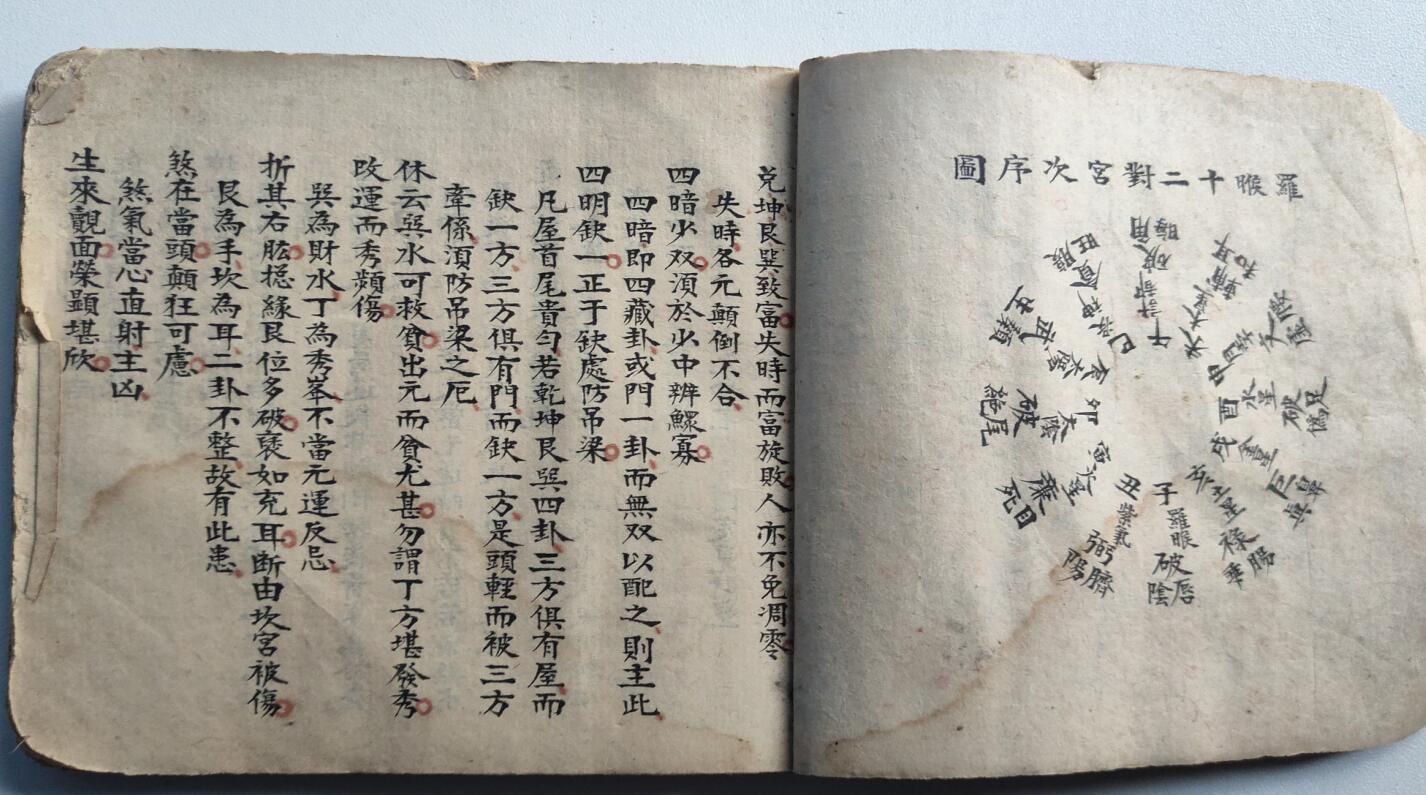 羅睺十二對宮次序圖
子羅睺破唇陰
丑紫氣弼臍陽
寅火星廉目死
卯太陰破絕尾
兌坤艮巽致富失時而富旋敗人亦不免凋零
失時各元顛倒不合
四暗少双須於少中辨鰥寡
四暗即四藏卦或門一卦而無双以配之則主此
四明缺一正于缺處防吊梁
凡屋首尾貴勻若乾坤艮巽四卦三方俱有屋而
缺一方三方俱有門而缺一方是頭輕而被三方
牽係須防吊梁之厄
休云巽水可救貧出元而貧尤甚勿謂丁方堪發秀
改運而秀頻傷
巽為財水丁為秀峯不當元運反忌
折其右肱揔緣艮位多破褒如充耳断由坎宮被傷
艮為手坎為耳二卦不整故有此患
煞在當頭顛狂可慮
煞氣當心直射主凶
生來覿面榮顯堪欣